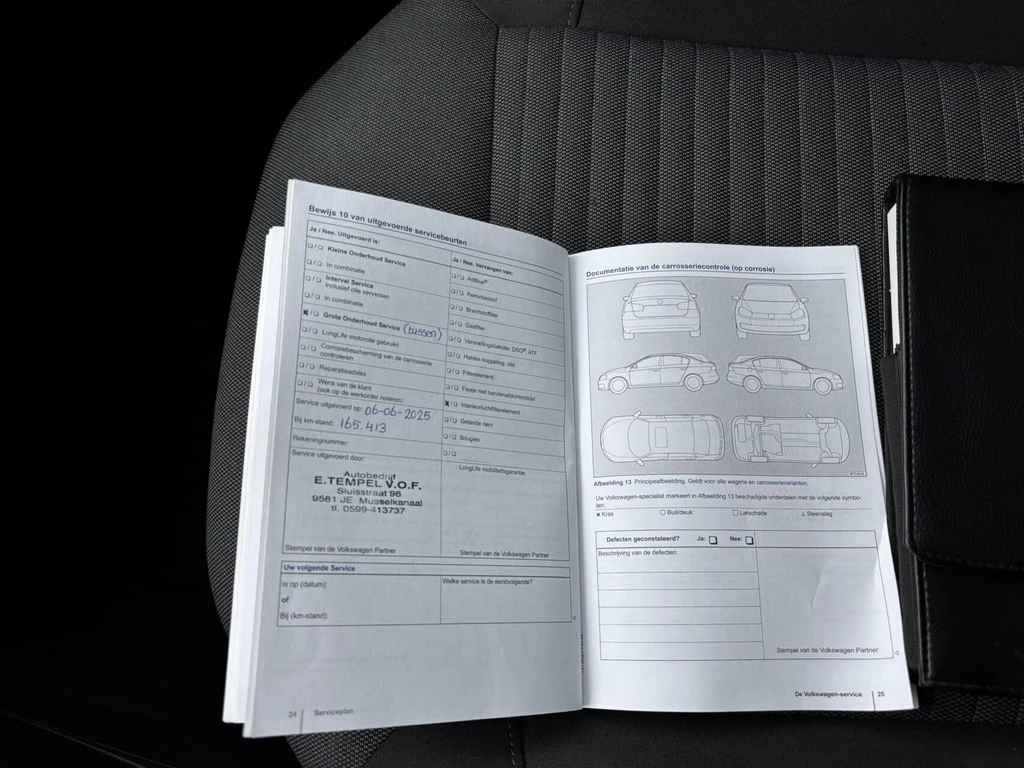 Bewijs 10 van uitgevoerde servicebeurten
Ja / Nee. Uitgevoerd is:
❑/❑ Kleine Onderhoud Service
❑/❑ In combinatie
❑/❑ Interval Service
inclusief olie verversen
❑/❑ In combinatie
x/❑ Grote Onderhoud Service (tussen)
❑/❑ LongLife motorolie gebruikt
❑/❑ Corrosiebescherming van de carrosserie
controleren
❑/❑ Reparatieadvies
❑/❑ Wens van de klant
(ook op de werkorder noteren)
Service uitgevoerd op: 06-06-2025
Bij km-stand: 165.413
Rekeningnummer:
Service uitgevoerd door:
Autobedrijf
E.TEMPEL V.O.F.
Sluisstraat 96
9581 JE Musselkanaal
tl. 0599-413737
Stempel van de Volkswagen Partner
Ja / Nee. Vervangen van:
❑/❑ AdBlue®
❑/❑ Remvloeistof
❑/❑ Brandstoffilter
❑/❑ Gasfilter
❑/❑ Versnellingsbakolie: DSG®, ATF
❑/❑ Haldex-koppeling: olie
❑/❑ Filterelement
❑/❑ Flesje met bandenafdichtmiddel
x/❑ Interieurluchtfilterelement
❑/❑ Getande riem
❑/❑ Bougies
❑/❑
LongLife mobiliteitsgarantie:
Stempel van de Volkswagen Partner
Uw volgende Service
is op (datum):
of
Bij (km-stand):
Welke service is de eerstvolgende?
24 Serviceplan
Documentatie van de carrosseriecontrole (op corrosie)
Afbeelding 13 Principeafbeelding. Geldt voor alle wagens en carrosserievarianten.
Uw Volkswagen-specialist markeert in Afbeelding 13 beschadigde onderdelen met de volgende symbo-
len:
x Kras ○ Buil/deuk □ Lakschade △ Steenslag
Defecten geconstateerd? Ja: ❑ Nee: ❑
Beschrijving van de defecten:
Stempel van de Volkswagen Partner
De Volkswagen-service 25